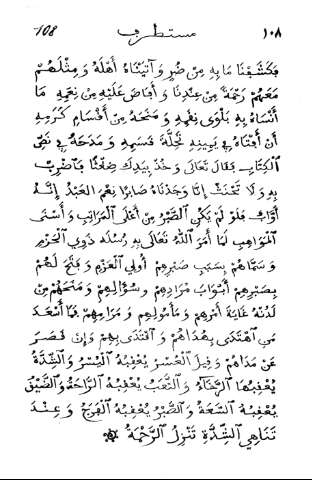 ١٠٨ مستطرف 108
فَكَشَفْنَا مَا بِهِ مِنْ ضُرٍّ وَآتَيْنَاهُ أَهْلَهُ وَمِثْلَهُمْ
مَعَهُمْ رَحْمَةً مِنْ عِنْدِنَا وَأَفَاضَ عَلَيْهِ مِنْ نِعَمِهِ مَا
أَنْسَاهُ بِهِ بَلْوَى نِقَمِهِ وَمَنَحَهُ مِنْ أَقْسَامِ كَرَمِهِ
أَنْ أَفْتَاهُ فِي يَمِينِهِ تَحِلَّةَ قَسَمِهِ وَمَدَحَهُ فِي نَصِّ
الْكِتَابِ فَقَالَ تَعَالَى وَخُذْ بِيَدِكَ ضِغْثًا فَاضْرِبْ
بِهِ وَلَا تَحْنَثْ إِنَّا وَجَدْنَاهُ صَابِرًا نِعْمَ الْعَبْدُ إِنَّهُ
أَوَّابٌ فَلَوْ لَمْ يَكُنِ الصَّبْرُ مِنْ أَعْلَى الْمَرَاتِبِ وَأَسْنَى
الْمَوَاهِبِ لَمَا أَمَرَ اللّٰهُ تَعَالَى بِهِ رُسُلَهُ ذَوِي الْحَزْمِ
وَسَمَّاهُمْ بِسَبَبِ صَبْرِهِمْ أُولِي الْعَزْمِ وَفَتَحَ لَهُمْ
بِصَبْرِهِمْ أَبْوَابَ مُرَادِهِمْ وَسُؤَالِهِمْ وَمَنَحَهُمْ مِنْ
لَدُنْهُ غَايَةَ أَمْرِهِمْ وَمَأْمُولِهِمْ وَمَرَامِهِمْ فَمَا أَسْعَدَ
مَنِ اهْتَدَى بِهُدَاهُمْ وَاقْتَدَى بِهِمْ وَإِنْ قَصَرَ
عَنْ مَدَاهُمْ وَقِيلَ الْعُسْرُ يَعْقُبُهُ الْيُسْرُ وَالشِّدَّةُ
يَعْقُبُهَا الرَّخَاءُ وَالتَّعَبُ يَعْقُبُهُ الرَّاحَةُ وَالضِّيقُ
يَعْقُبُهُ السَّعَةُ وَالصَّبْرُ يَعْقُبُهُ الْفَرَجُ وَعِنْدَ
تَنَاهِي الشِّدَّةِ تَنْزِلُ الرَّحْمَةُ